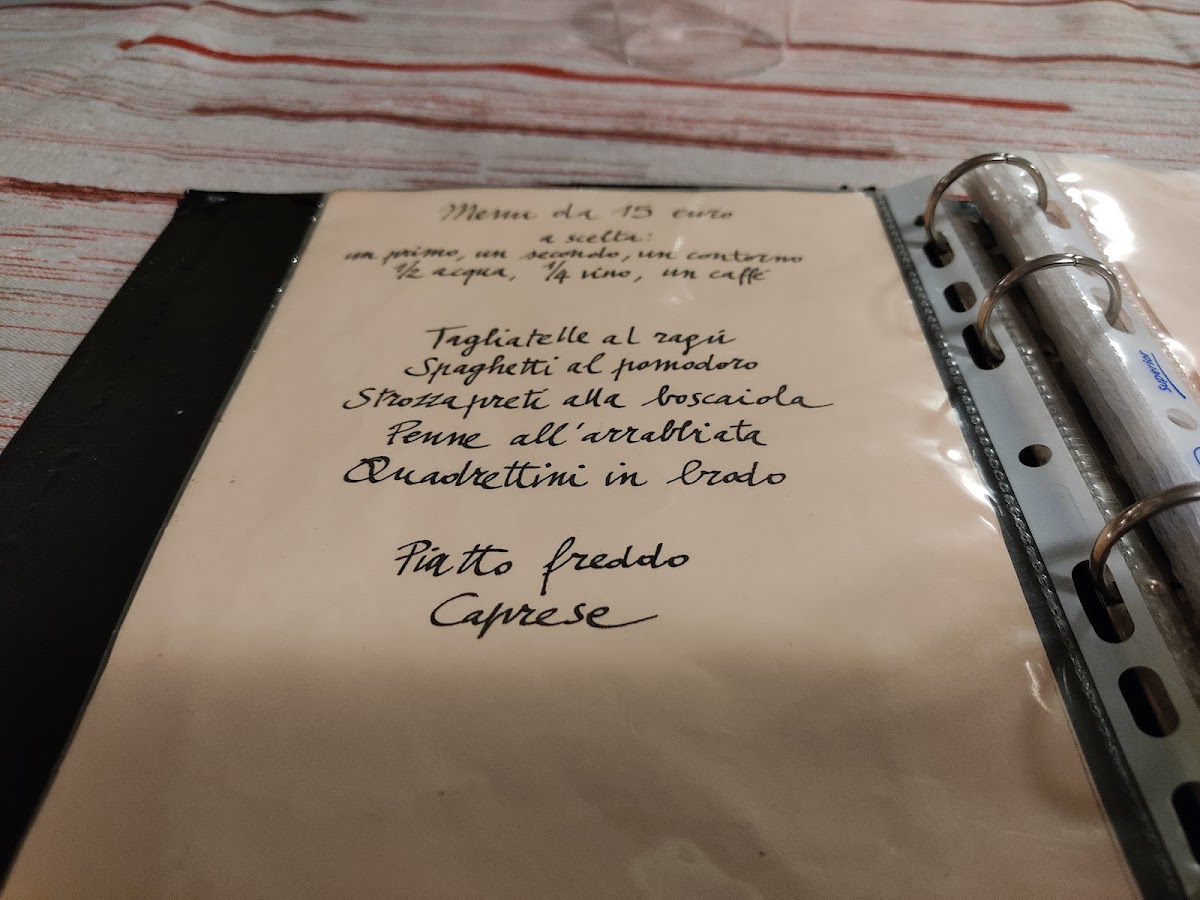 Menu da 15 euro
a scelta:
un primo, un secondo, un contorno
1/2 acqua, 1/4 vino, un caffé
Tagliatelle al ragú
Spaghetti al pomodoro
Strozzapreti alla boscaiola
Penne all'arrabbiata
Quadrettini in brodo
Piatto freddo
Caprese
Superior